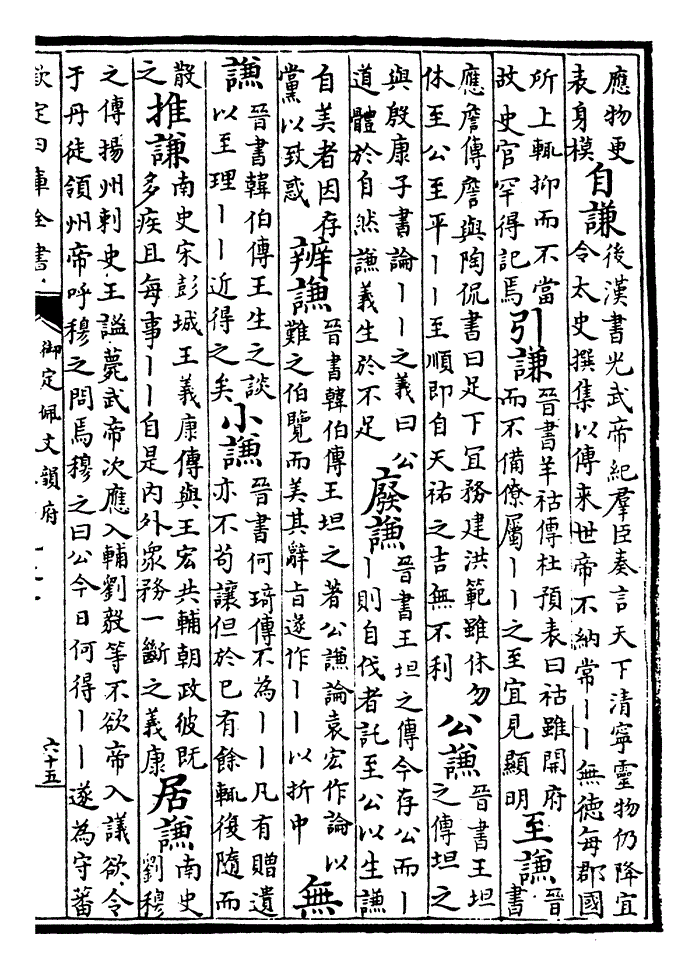 應物更表身模 自謙 後漢書光武帝紀羣臣奏言天下清寧靈物仍降宜令太史撰集以傳来世帝不納常丨丨無德每郡國
所上輒抑而不當故史官罕得記焉 引謙 晉書羊祜傳杜預表曰祜雖開府而不備僚屬丨丨之至宜見顯明 至謙 晉書
應詹傳詹與陶侃書曰足下冝務建洪範雖休勿休至公至平丨丨至順即自天祐之吉無不利 公謙 晉書王坦之傳坦之
與殷康子書論丨丨之義曰公道體於自然謙義生於不足 廢謙 晉書王坦之傳今存公而丨丨則自伐者託至公以生謙
自美者因存黨以致惑 辨謙 晉書韓伯傳王坦之著公謙論袁宏作論以難之伯覽而美其辭旨遂作丨丨以折中 無
謙 晉書韓伯傳王生之談以至理丨丨近得之矣 小謙 晉書何琦傳不為丨丨凡有贈遺亦不苟讓但於己有餘輒後隨而
散之 推謙 南史宋彭城王義康傳與王宏共輔朝政彼既多疾且每事丨丨自是内外衆務一斷之義康 居謙 南史劉穆
之傳揚州刺史王謐薨武帝次應入輔劉毅等不欲帝入議欲令于丹徒領州帝呼穆之問焉穆之曰公今日何得丨丨遂為守蕃
欽定四庫全書
御定佩文韻府
六十五